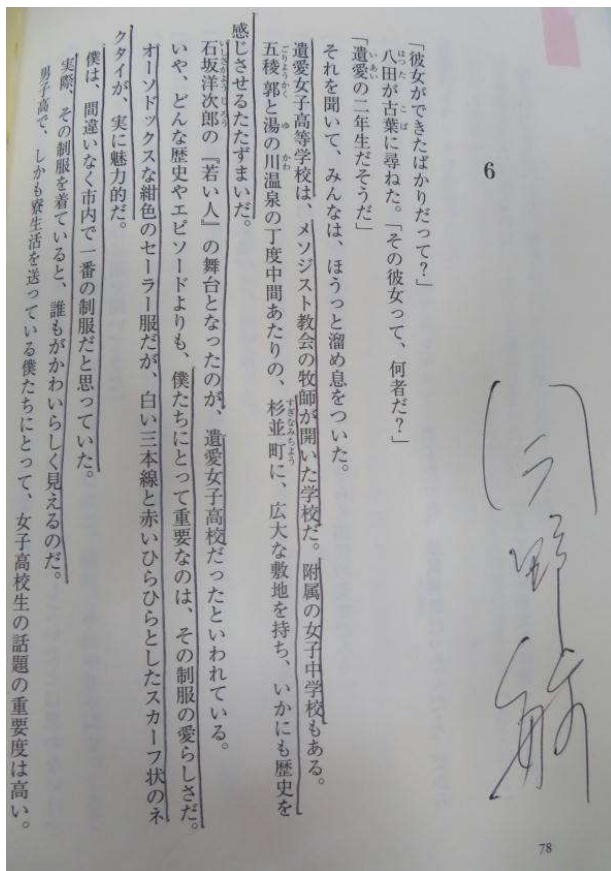 6
「彼女ができたばかりだって？」
八田が古葉に尋ねた。「その彼女って、何者だ？」
「遺愛の二年生だそうだ」
それを聞いて、みんなは、ほうっと溜め息をついた。
遺愛女子高等学校は、メソジスト教会の牧師が開いた学校だ。附属の女子中学校もある。
五稜郭と湯の川温泉の丁度中間あたりの、杉並町に、広大な敷地を持ち、いかにも歴史を
感じさせるたたずまいだ。
石坂洋次郎の『若い人』の舞台となったのが、遺愛女子高校だったといわれている。
いや、どんな歴史やエピソードよりも、僕たちにとって重要なのは、その制服の愛らしさだ。
オーソドックスな紺色のセーラー服だが、白い三本線と赤いひらひらとしたスカーフ状のネ
クタイが、実に魅力的だ。
僕は、間違いなく市内で一番の制服だと思っていた。
実際、その制服を着ていると、誰もがかわいらしく見えるのだ。
男子高で、しかも寮生活を送っている僕たちにとって、女子高校生の話題の重要度は高い。
78